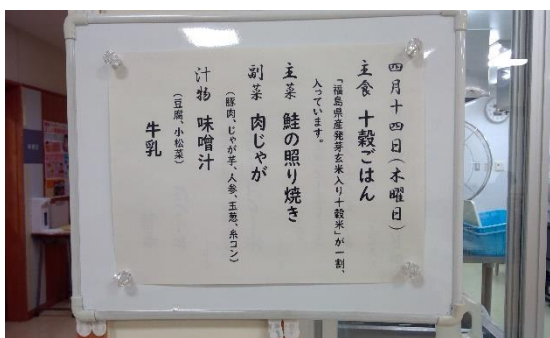 四月十四日(木曜日)
主食 十穀ごはん
「福島県産発芽玄米入り十穀米」が一割、
入っています。
主菜 鮭の照り焼き
副菜 肉じゃが
(豚肉、じゃが芋、人参、玉葱、糸コン)
汁物 味噌汁
(豆腐、小松菜)
牛乳